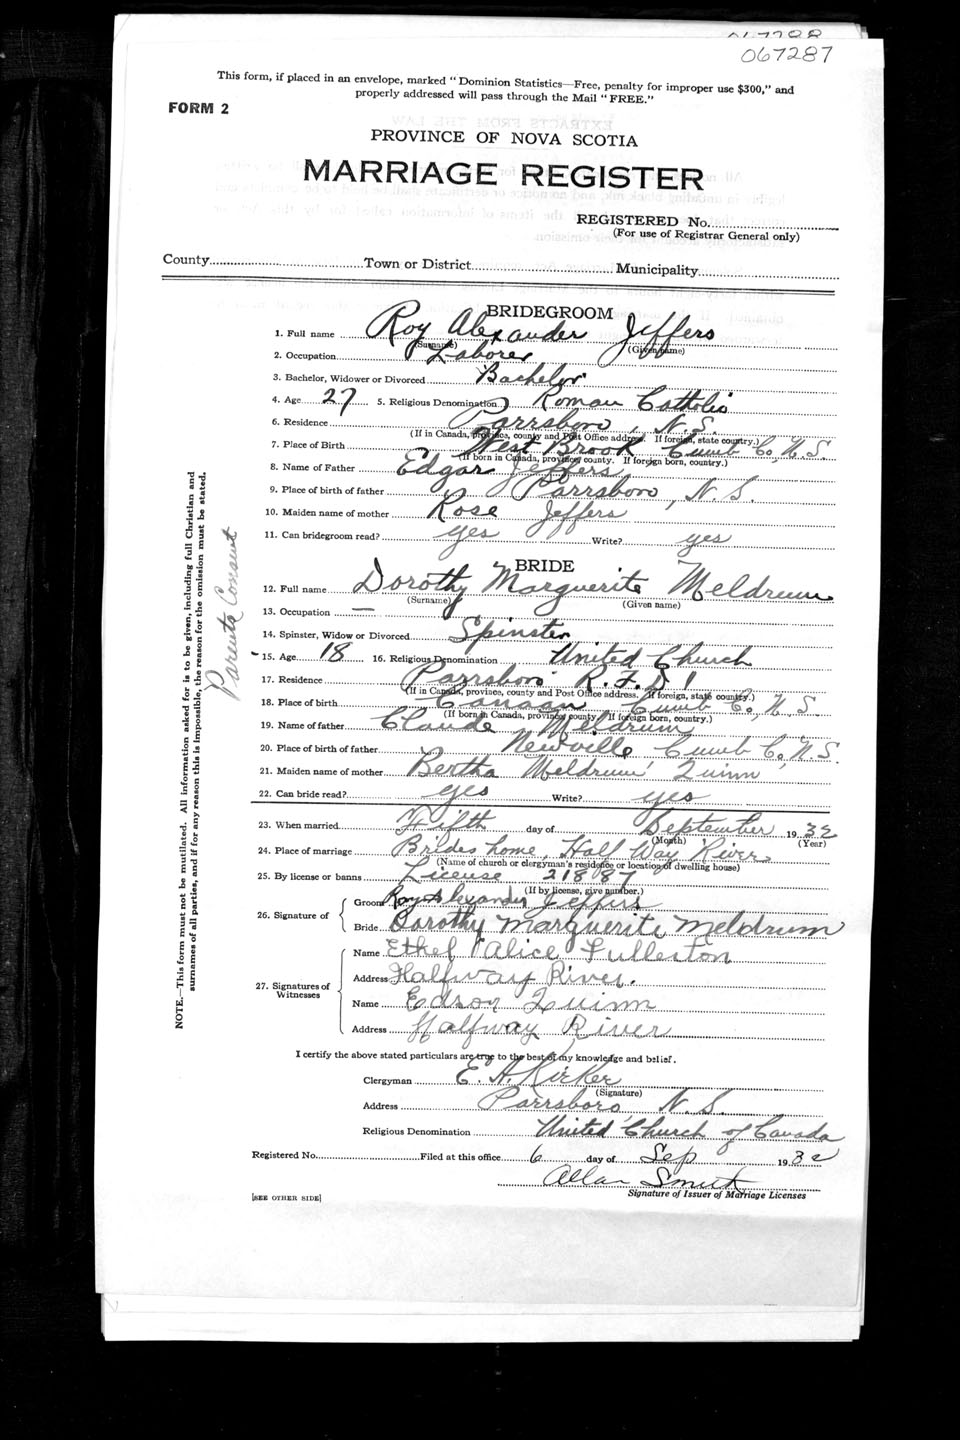 067288
067287
This form, if placed in an envelope, marked "Dominion Statistics—Free, penalty for improper use $300," and
properly addressed will pass through the Mail "FREE."
FORM 2
PROVINCE OF NOVA SCOTIA
MARRIAGE REGISTER
REGISTERED No.
(For use of Registrar General only)
County Town or District Municipality
BRIDEGROOM
1. Full name Roy Alexander Jeffers
(Surname) (Given name)
2. Occupation Laborer
3. Bachelor, Widower or Divorced Bachelor
4. Age 27 5. Religious Denomination Roman Catholic
6. Residence Parrsboro, N.S.
(If in Canada, province, county and Post Office address. If foreign, state country.)
7. Place of Birth West Brook Cumb Co, N.S.
(If born in Canada, province, county. If foreign born, country.)
8. Name of Father Edgar Jeffers
9. Place of birth of father Parrsboro, N.S.
10. Maiden name of mother Rose Jeffers
11. Can bridegroom read? yes Write? yes
BRIDE
12. Full name Dorothy Marguerite Meldrum
(Surname) (Given name)
13. Occupation —
14. Spinster, Widow or Divorced Spinster
15. Age 18 16. Religious Denomination United Church
17. Residence Parrsboro R.F.D 1
(If in Canada, province, county and Post Office address. If foreign, state country.)
18. Place of birth Canaan Cumb Co, N.S.
(If born in Canada, province, county. If foreign born, country.)
19. Name of father Claude Meldrum
20. Place of birth of father Newville Cumb Co, N.S.
21. Maiden name of mother Bertha Meldrum Quinn
22. Can bride read? yes Write? yes
23. When married Fifth day of September 1932
(Month) (Year)
24. Place of marriage Brides home, Half Way River
(Name of church or clergyman's residence or location of dwelling house)
25. By license or banns License 21887
(If by license, give number.)
26. Signature of
Groom Roy Alexander Jeffers
Bride Dorothy Marguerite Meldrum
27. Signatures of Witnesses
Name Ethel Alice Fullerton
Address Halfway River.
Name Edson Quinn
Address Halfway River
I certify the above stated particulars are true to the best of my knowledge and belief.
Clergyman E. A. Kirker
(Signature)
Address Parrsboro N.S.
Religious Denomination United Church of Canada
Registered No. Filed at this office 6 day of Sep 1932
Allan Smith
Signature of Issuer of Marriage Licenses
[SEE OTHER SIDE]
NOTE.—This form must not be mutilated. All information asked for is to be given, including full Christian and
surnames of all parties, and if for any reason this is impossible, the reason for the omission must be stated.
Parents Consent